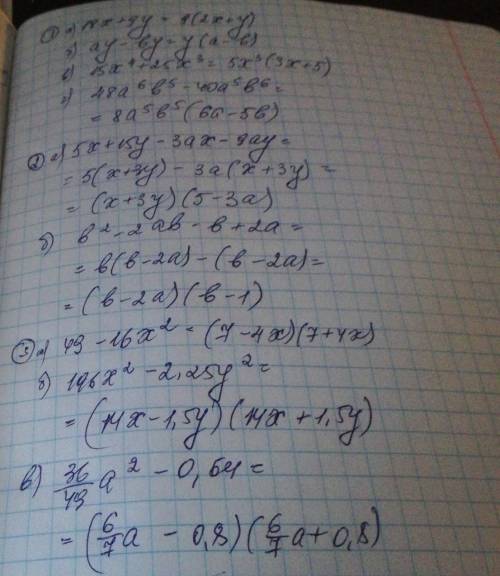 ① а) 18x+9y = 9(2x+y)
б) ay - by = y(a-b)
в) 15x⁴+25x³ = 5x³(3x+5)
г) 48a⁶b⁵ - 40a⁵b⁶ =
= 8a⁵b⁵(6a-5b)
② а) 5x+15y - 3ax - 9ay =
= 5(x+3y) - 3a(x+3y) =
= (x+3y)(5-3a)
б) b² - 2ab - b + 2a =
= b(b-2a) - (b-2a) =
= (b-2a)(b-1)
③ а) 49 - 16x² = (7-4x)(7+4x)
б) 196x² - 2,25y² =
= (14x-1,5y)(14x+1,5y)
в) 36/49 a² - 0,64 =
= (6/7 a - 0,8)(6/7 a + 0,8)